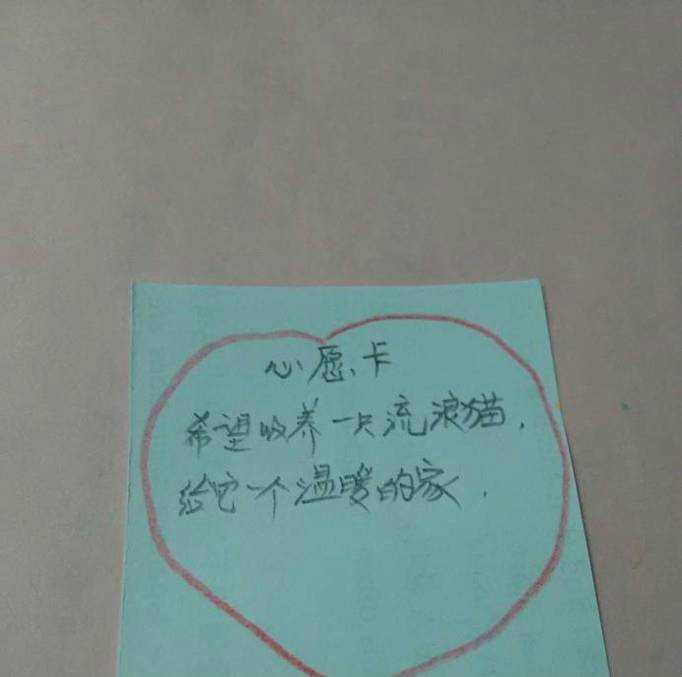 心愿卡
希望收养一只流浪猫，
给它一个温暖的家．